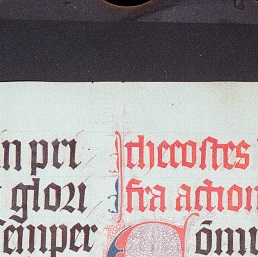 in pri
glori
semper
thecostes
fra action
Com̄